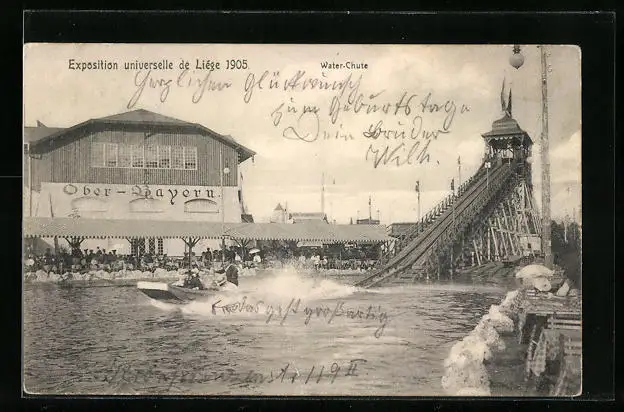 Exposition universelle de Liége 1905.
Water-Chute
Herzlichen Glückwunsch
zum Geburtstage
Dein Bruder
Wilh.
Ober-Bayern
geht großartig
119 II